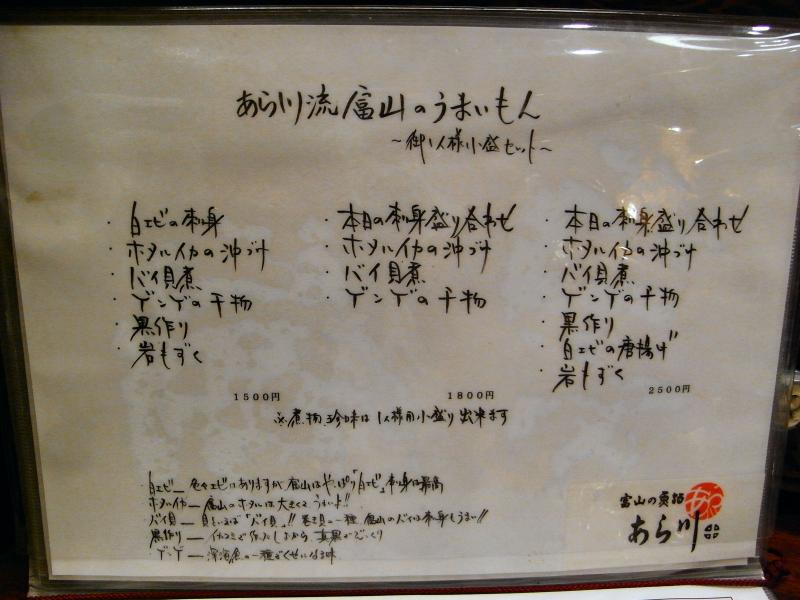 あら川流富山のうまいもん
~御1人様小盛セット~
・白エビの刺身
・ホタルイカの沖づけ
・バイ貝煮
・ゲンゲの干物
・黒作り
・岩もずく
1500円
・本日の刺身盛り合わせ
・ホタルイカの沖づけ
・バイ貝煮
・ゲンゲの干物
1800円
・本日の刺身盛り合わせ
・ホタルイカの沖づけ
・バイ貝煮
・ゲンゲの干物
・黒作り
・白エビの唐揚げ
・岩もずく
2500円
※煮物、珍味は1人様用小盛り出来ます
白エビ― 色々エビはありますが富山はやっぱり「白エビ」刺身は最高
ホタルイカ― 富山のホタルは大きくてうまいよ!!
バイ貝― 貝といえば「バイ貝」!! 巻き貝の一種 富山のバイは刺身もうまい!!
黒作り― イカスミで作った塩から 真黒でびっくり
ゲンゲ― 深海魚の一種でくせになる味
富山の
あら川